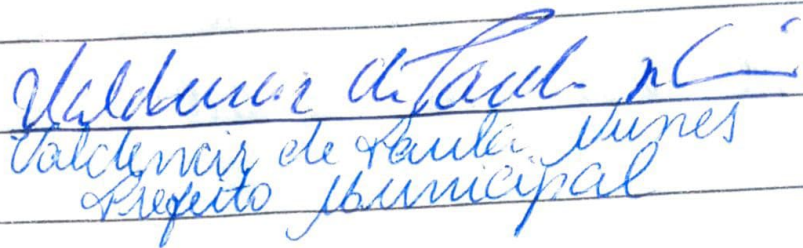 Valdemir de Paula Nunes
Valdemir de Paula Nunes
Prefeito Municipal